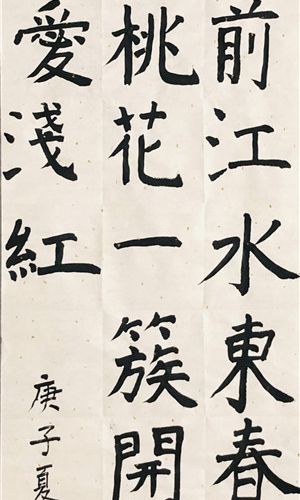 前江水東春
桃花一簇開
愛淺紅
庚子夏